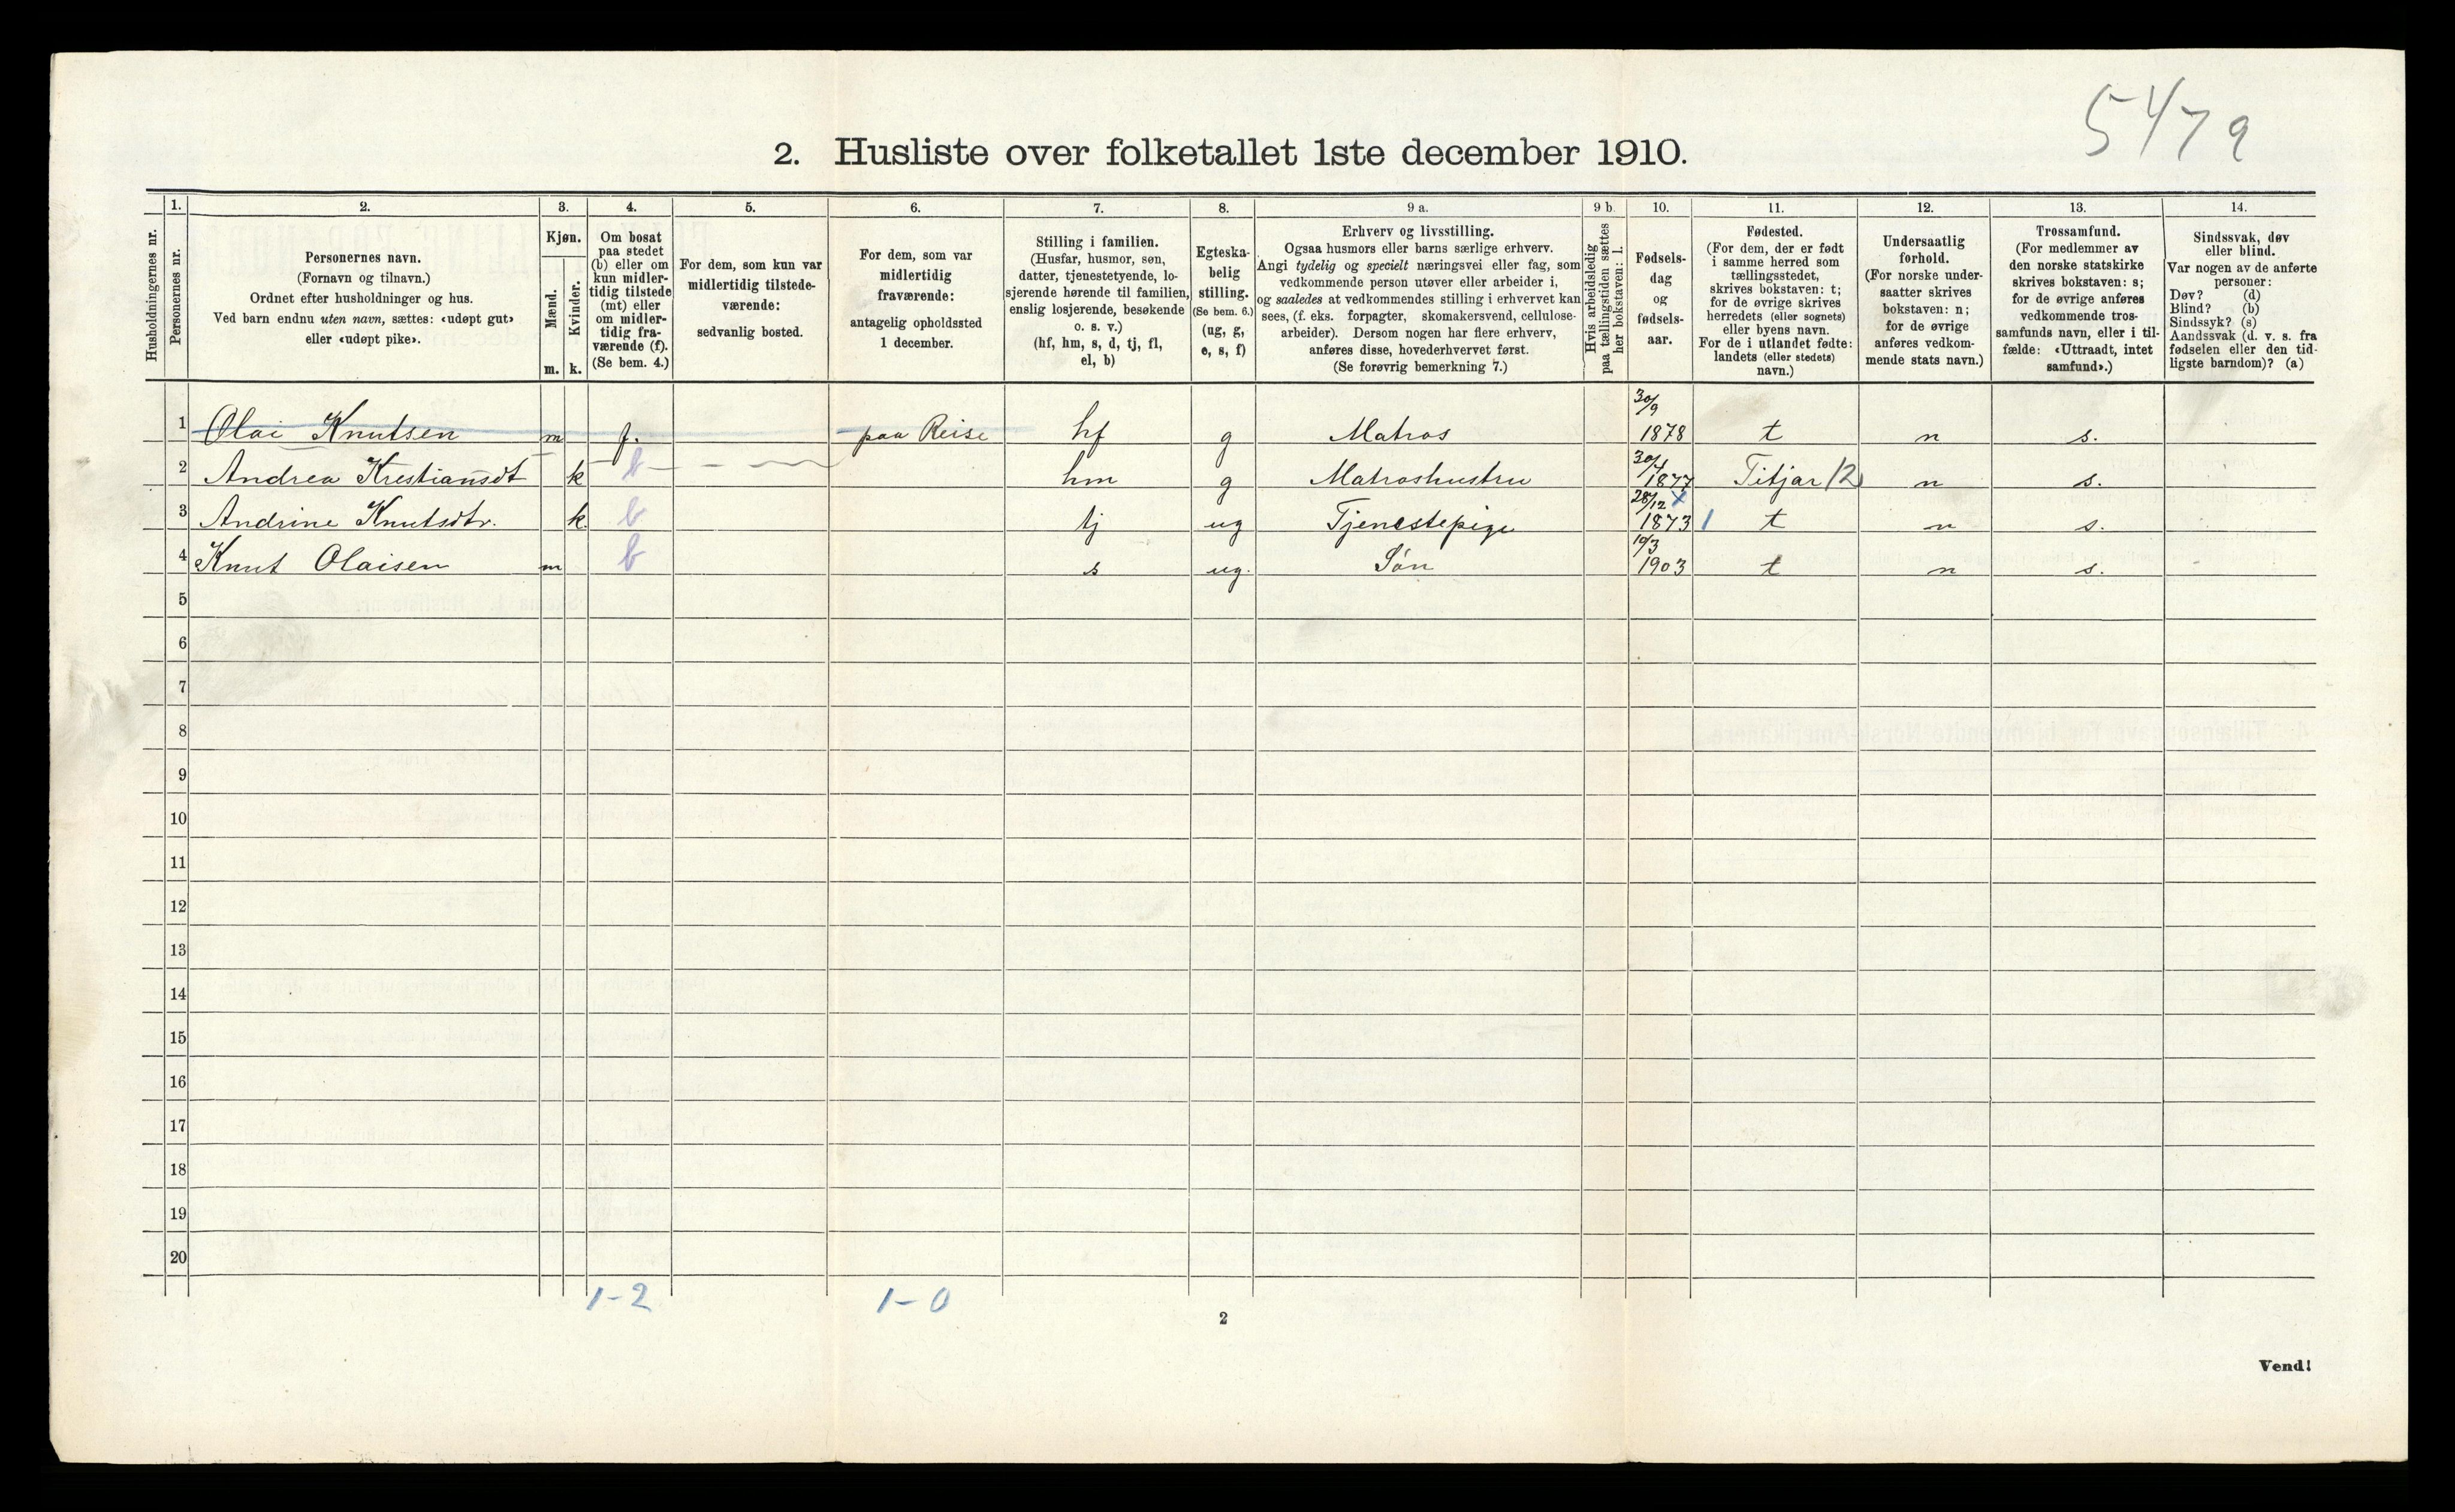 5479
2. Husliste over folketallet 1ste december 1910.
Husholdningernes nr.
1.
Personernes nr.
2.
Personernes navn.
(Fornavn og tilnavn.)
Ordnet efter husholdninger og hus.
Ved barn endnu uten navn, sættes: «udøpt gut»
eller «udøpt pike».
3.
Kjøn.
Mænd.
Kvinder.
m. k.
4.
Om bosat
paa stedet
(b) eller om
kun midler-
tidig tilstede
(mt) eller
om midler-
tidig fra-
værende (f).
(Se bem. 4.)
5.
For dem, som kun var
midlertidig tilstede-
værende:
sedvanlig bosted.
6.
For dem, som var
midlertidig
fraværende:
antagelig opholdssted
1 december.
7.
Stilling i familien.
(Husfar, husmor, søn,
datter, tjenestetyende, lo-
sjerende hørende til familien,
enslig losjerende, besøkende
o. s. v.)
(hf, hm, s, d, tj, fl,
el, b)
8.
Egteska-
belig
stilling.
(Se bem. 6.)
(ug, g,
e, s, f)
9 a.
Erhverv og livsstilling.
Ogsaa husmors eller barns særlige erhverv.
Angi tydelig og specielt næringsvei eller fag, som
vedkommende person utøver eller arbeider i,
og saaledes at vedkommendes stilling i erhvervet kan
sees, (f. eks. forpagter, skomakersvend, cellulose-
arbeider). Dersom nogen har flere erhverv,
anføres disse, hovederhvervet først.
(Se forøvrig bemerkning 7.)
9 b.
Hvis arbeidsledig
paa tællingstiden sættes
her bokstaven: l.
10.
Fødsels-
dag
og
fødsels-
aar.
11.
Fødested.
(For dem, der er født
i samme herred som
tællingsstedet,
skrives bokstaven: t;
for de øvrige skrives
herredets (eller sognets)
eller byens navn.
For de i utlandet fødte:
landets (eller stedets)
navn.)
12.
Undersaatlig
forhold.
(For norske under-
saatter skrives
bokstaven: n;
for de øvrige
anføres vedkom-
mende stats navn.)
13.
Trossamfund.
(For medlemmer av
den norske statskirke
skrives bokstaven: s;
for de øvrige anføres
vedkommende tros-
samfunds navn, eller i til-
fælde: «Uttraadt, intet
samfund».)
14.
Sindssvak, døv
eller blind.
Var nogen av de anførte
personer:
Døv? (d)
Blind? (b)
Sindssyk? (s)
Aandssvak (d. v. s. fra
fødselen eller den tid-
ligste barndom)? (a)
1 Olai Knutsen m f. paa Reise hf g Matros 30/9 1878 t n s.
2 Andrea Krestiansdt k b hm g Matroshustru 30/4 1877 Titjar 12 n s.
3 Andrine Knutsdtr. k b tj ug Tjenestepige 28/12 1873 1 t n s.
4 Knut Olaisen m b s ug. Søn 10/3 1903 t n s.
5
6
7
8
9
10
11
12
13
14
15
16
17
18
19
20
1-2 1-0
2
Vend!